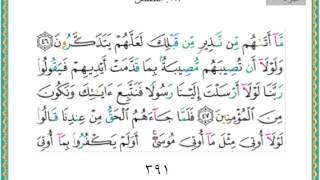 مَّآ أَتَىٰهُم مِّن نَّذِيرٍ مِّن قَبْلِكَ لَعَلَّهُمْ يَتَذَكَّرُونَ ٤٦
وَلَوْلَآ أَن تُصِيبَهُم مُّصِيبَةٌۢ بِمَا قَدَّمَتْ أَيْدِيهِمْ فَيَقُولُوا۟
رَبَّنَا لَوْلَآ أَرْسَلْتَ إِلَيْنَا رَسُولًا فَنَتَّبِعَ ءَايَٰتِكَ وَنَكُونَ
مِنَ ٱلْمُؤْمِنِينَ ٤٧ فَلَمَّا جَآءَهُمُ ٱلْحَقُّ مِنْ عِندِنَا قَالُوا۟
لَوْلَآ أُوتِىَ مِثْلَ مَآ أُوتِىَ مُوسَىٰٓ ۚ أَوَلَمْ يَكْفُرُوا۟ بِمَآ أُوتِىَ
٣٩١